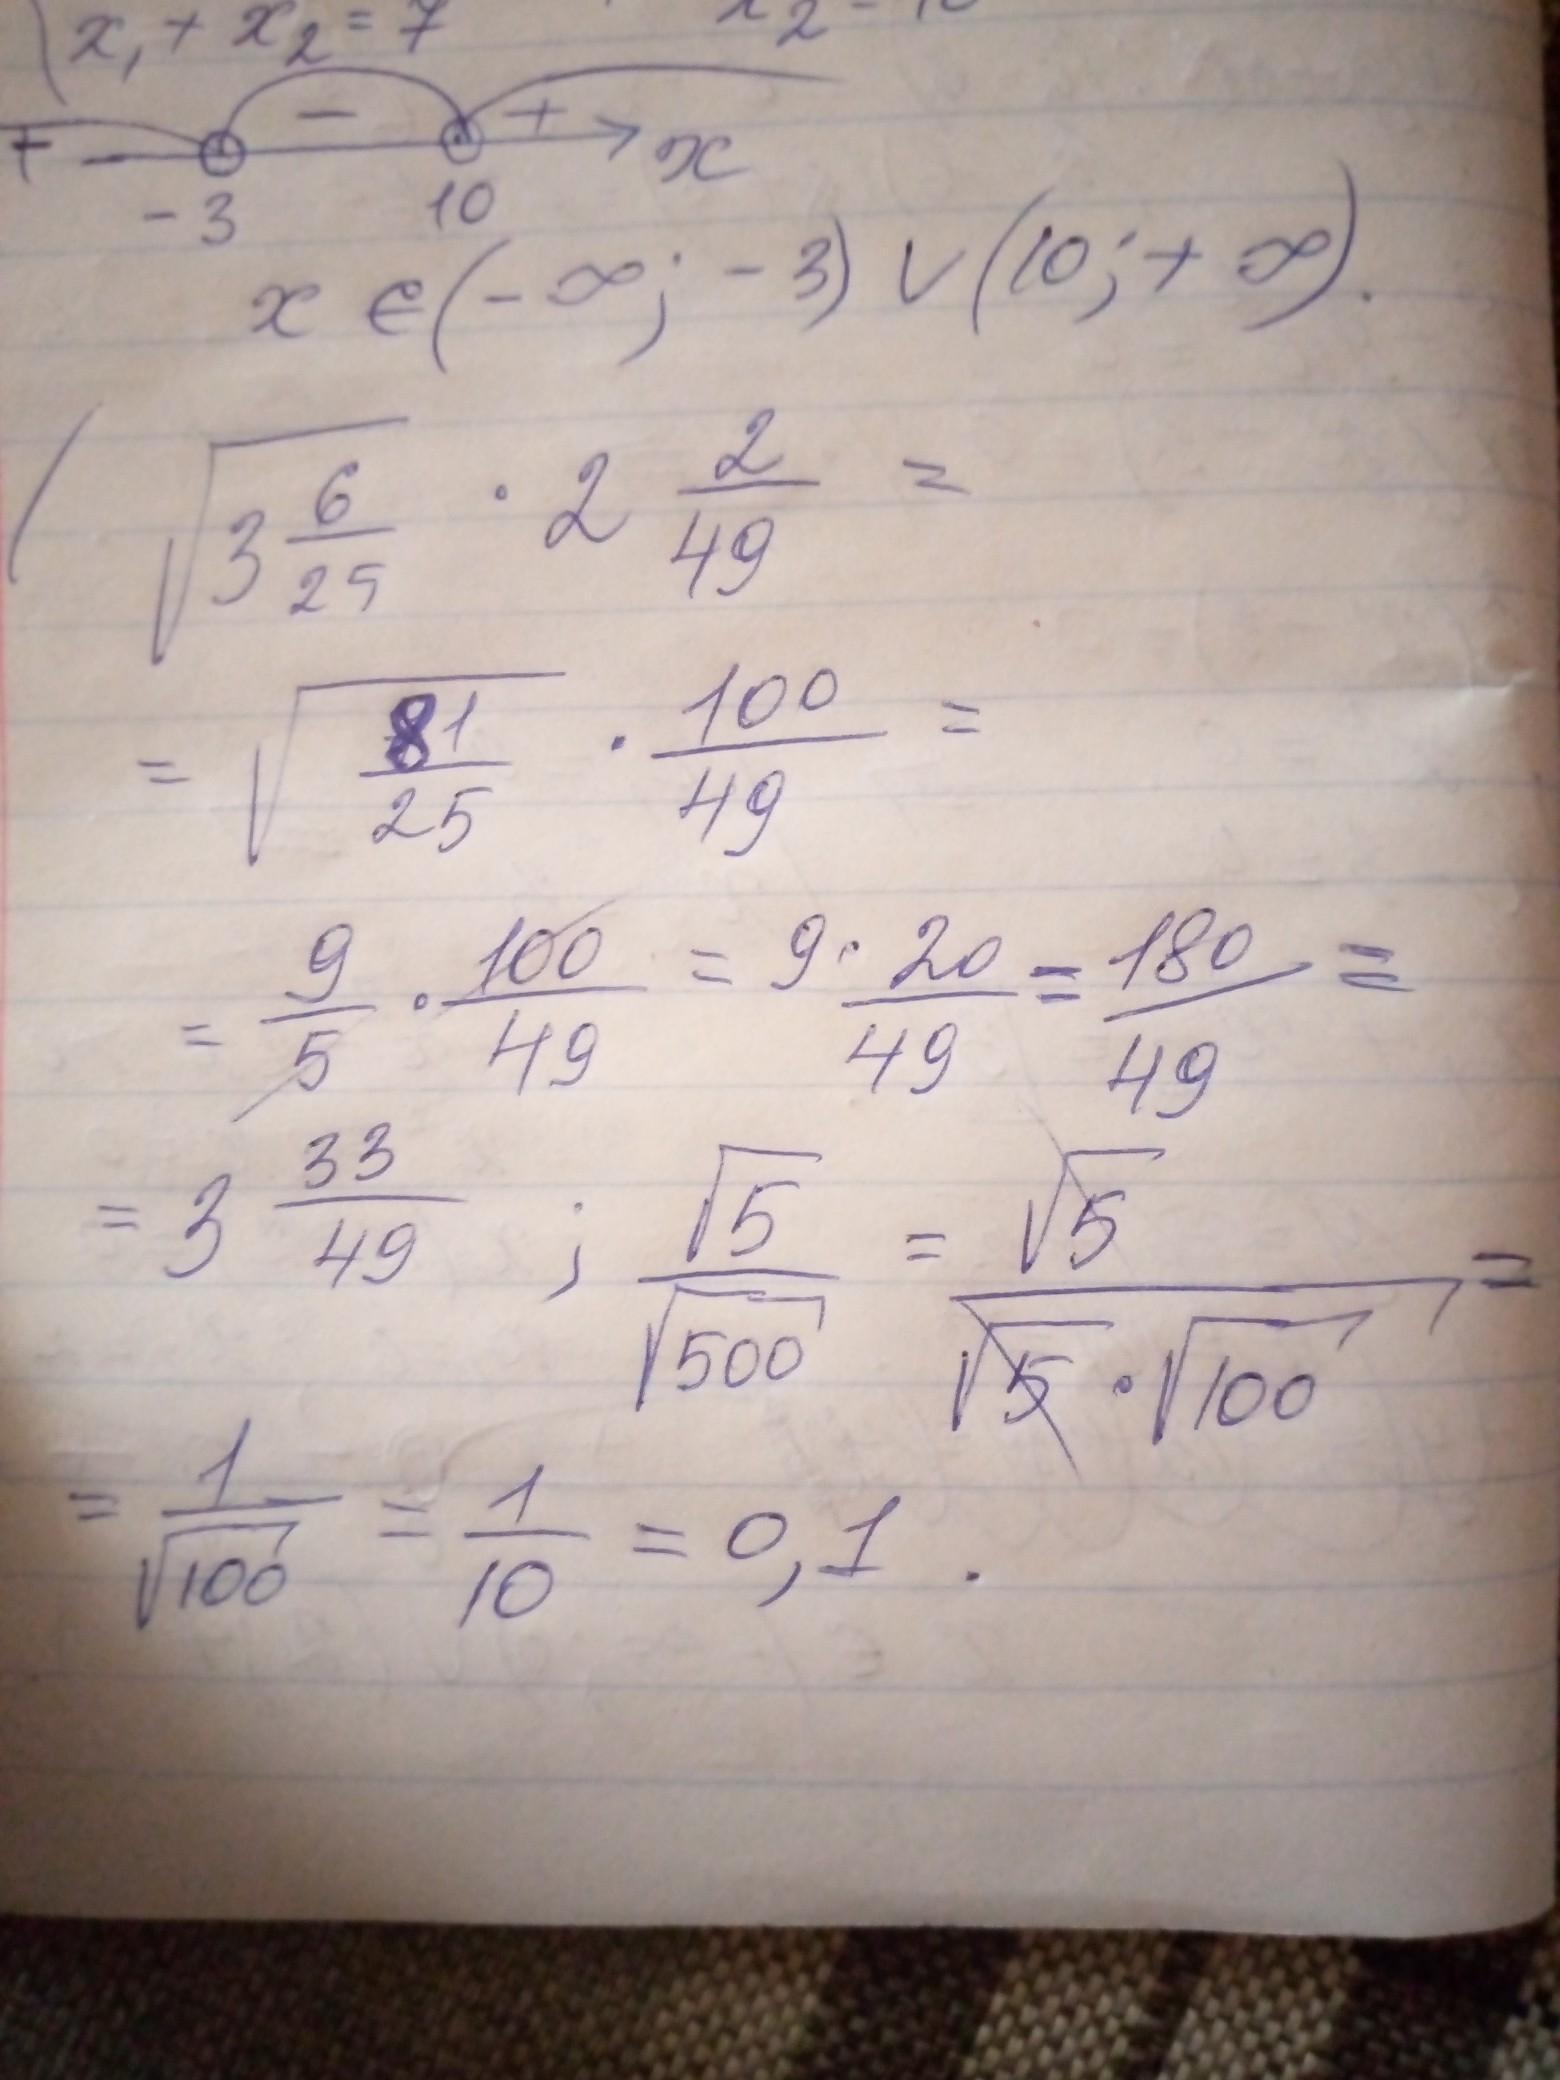 x₁ + x₂ = 7
+ − + x
-3 10
x ∈ (-∞; -3) ∪ (10; +∞).
√(3 6/25) · 2 2/49 =
= √(81/25) · 100/49 =
= 9/5 · 100/49 = 9 · 20/49 = 180/49 =
= 3 33/49 ; √5/√500 = √5/(√5 · √100) =
= 1/√100 = 1/10 = 0,1 .